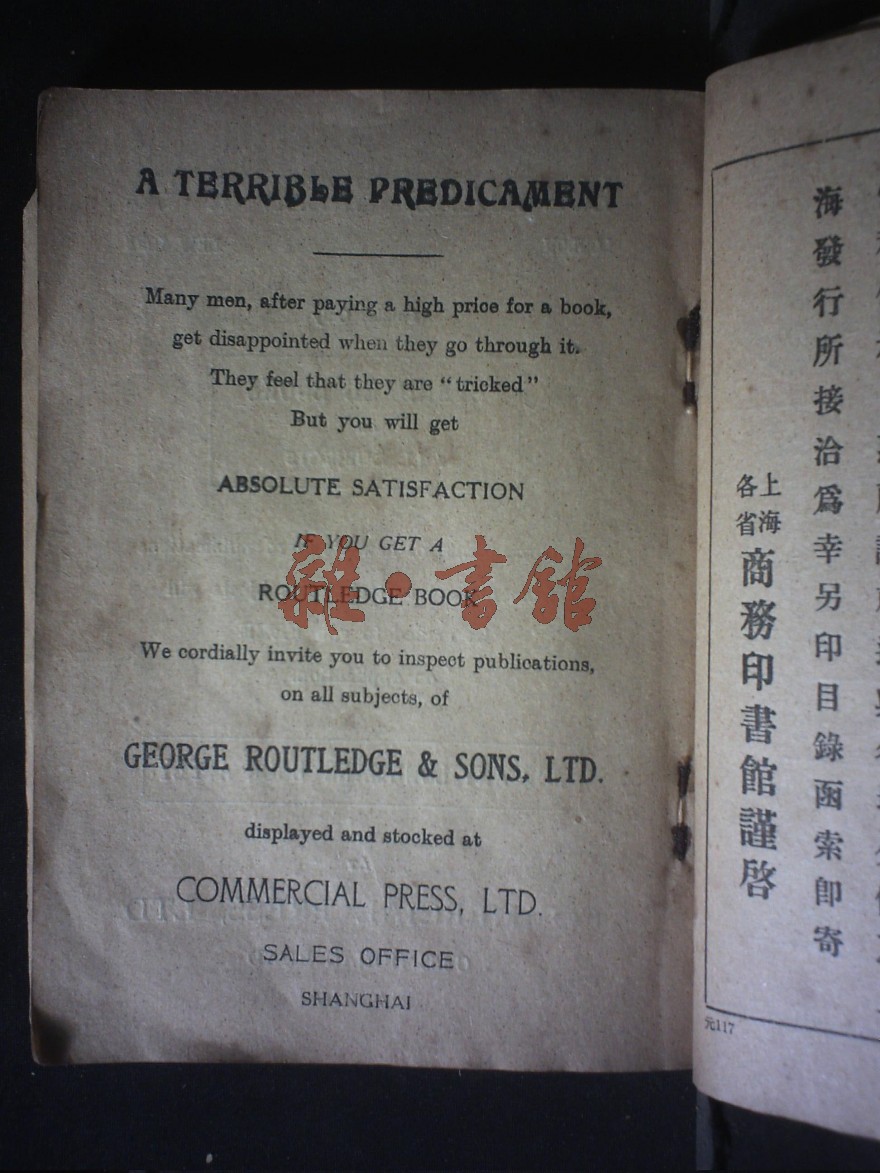 A TERRIBLE PREDICAMENT
Many men, after paying a high price for a book,
get disappointed when they go through it.
They feel that they are "tricked"
But you will get
ABSOLUTE SATISFACTION
IF YOU GET A
ROUTLEDGE BOOK
We cordially invite you to inspect publications,
on all subjects, of
GEORGE ROUTLEDGE & SONS, LTD.
displayed and stocked at
COMMERCIAL PRESS, LTD.
SALES OFFICE
SHANGHAI
雜·書館
海發行所接洽爲幸另印目錄函索卽寄
上海
各省
商務印書館謹啓
元117